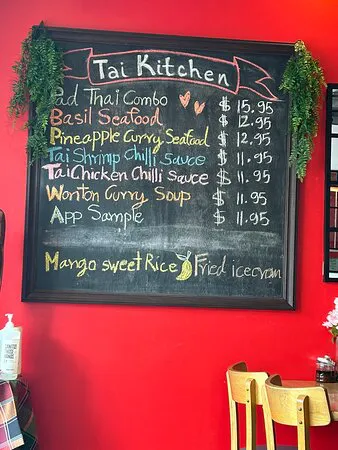 Tai Kitchen
Pad Thai Combo $ 15.95
Basil Seafood $ 12.95
Pineapple Curry Seafood $ 12.95
Tai Shrimp Chilli Sauce $ 11.95
Tai Chicken Chilli Sauce $ 11.95
Wonton Curry Soup $ 11.95
App Sample $ 11.95
Mango sweet Rice Fried icecream